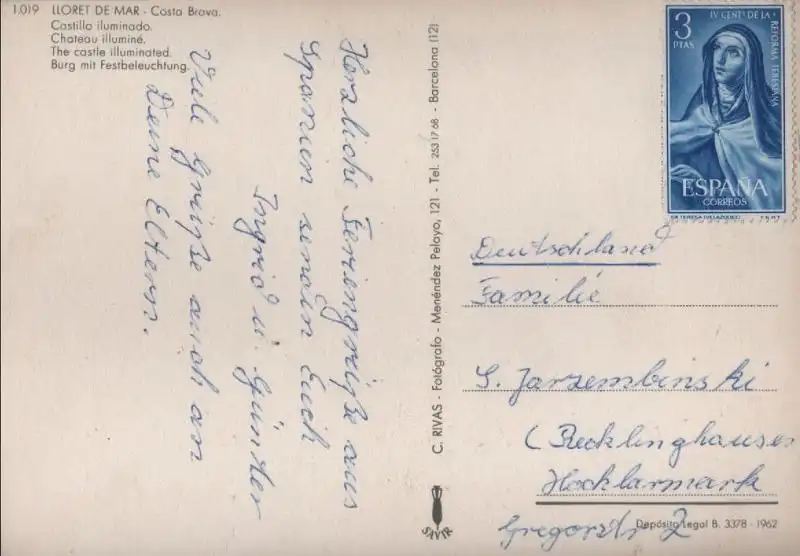 1.019 LLORET DE MAR - Costa Brava.
Castillo iluminado.
Chateau illuminé.
The castle illuminated.
Burg mit Festbeleuchtung.
Herzliche Feriengrüße aus
Spanien senden Euch
Ingrid u. Günter
Viele Grüße auch an
Deine Eltern.
C. RIVAS - Fotógrafo - Menéndez Pelayo, 121 - Tel. 253 17 68 - Barcelona (12)
SAVIR
3 PTAS
IV CENT. DE LA REFORMA TERESIANA
ESPAÑA
CORREOS
STA TERESA (VELAZQUEZ) F.N.M.T.
Deutschland
Familie
S. Jarzembinski
(Recklinghausen
Hochlarmark
Gregorstr. 2
Depósito Legal B. 3378 - 1962